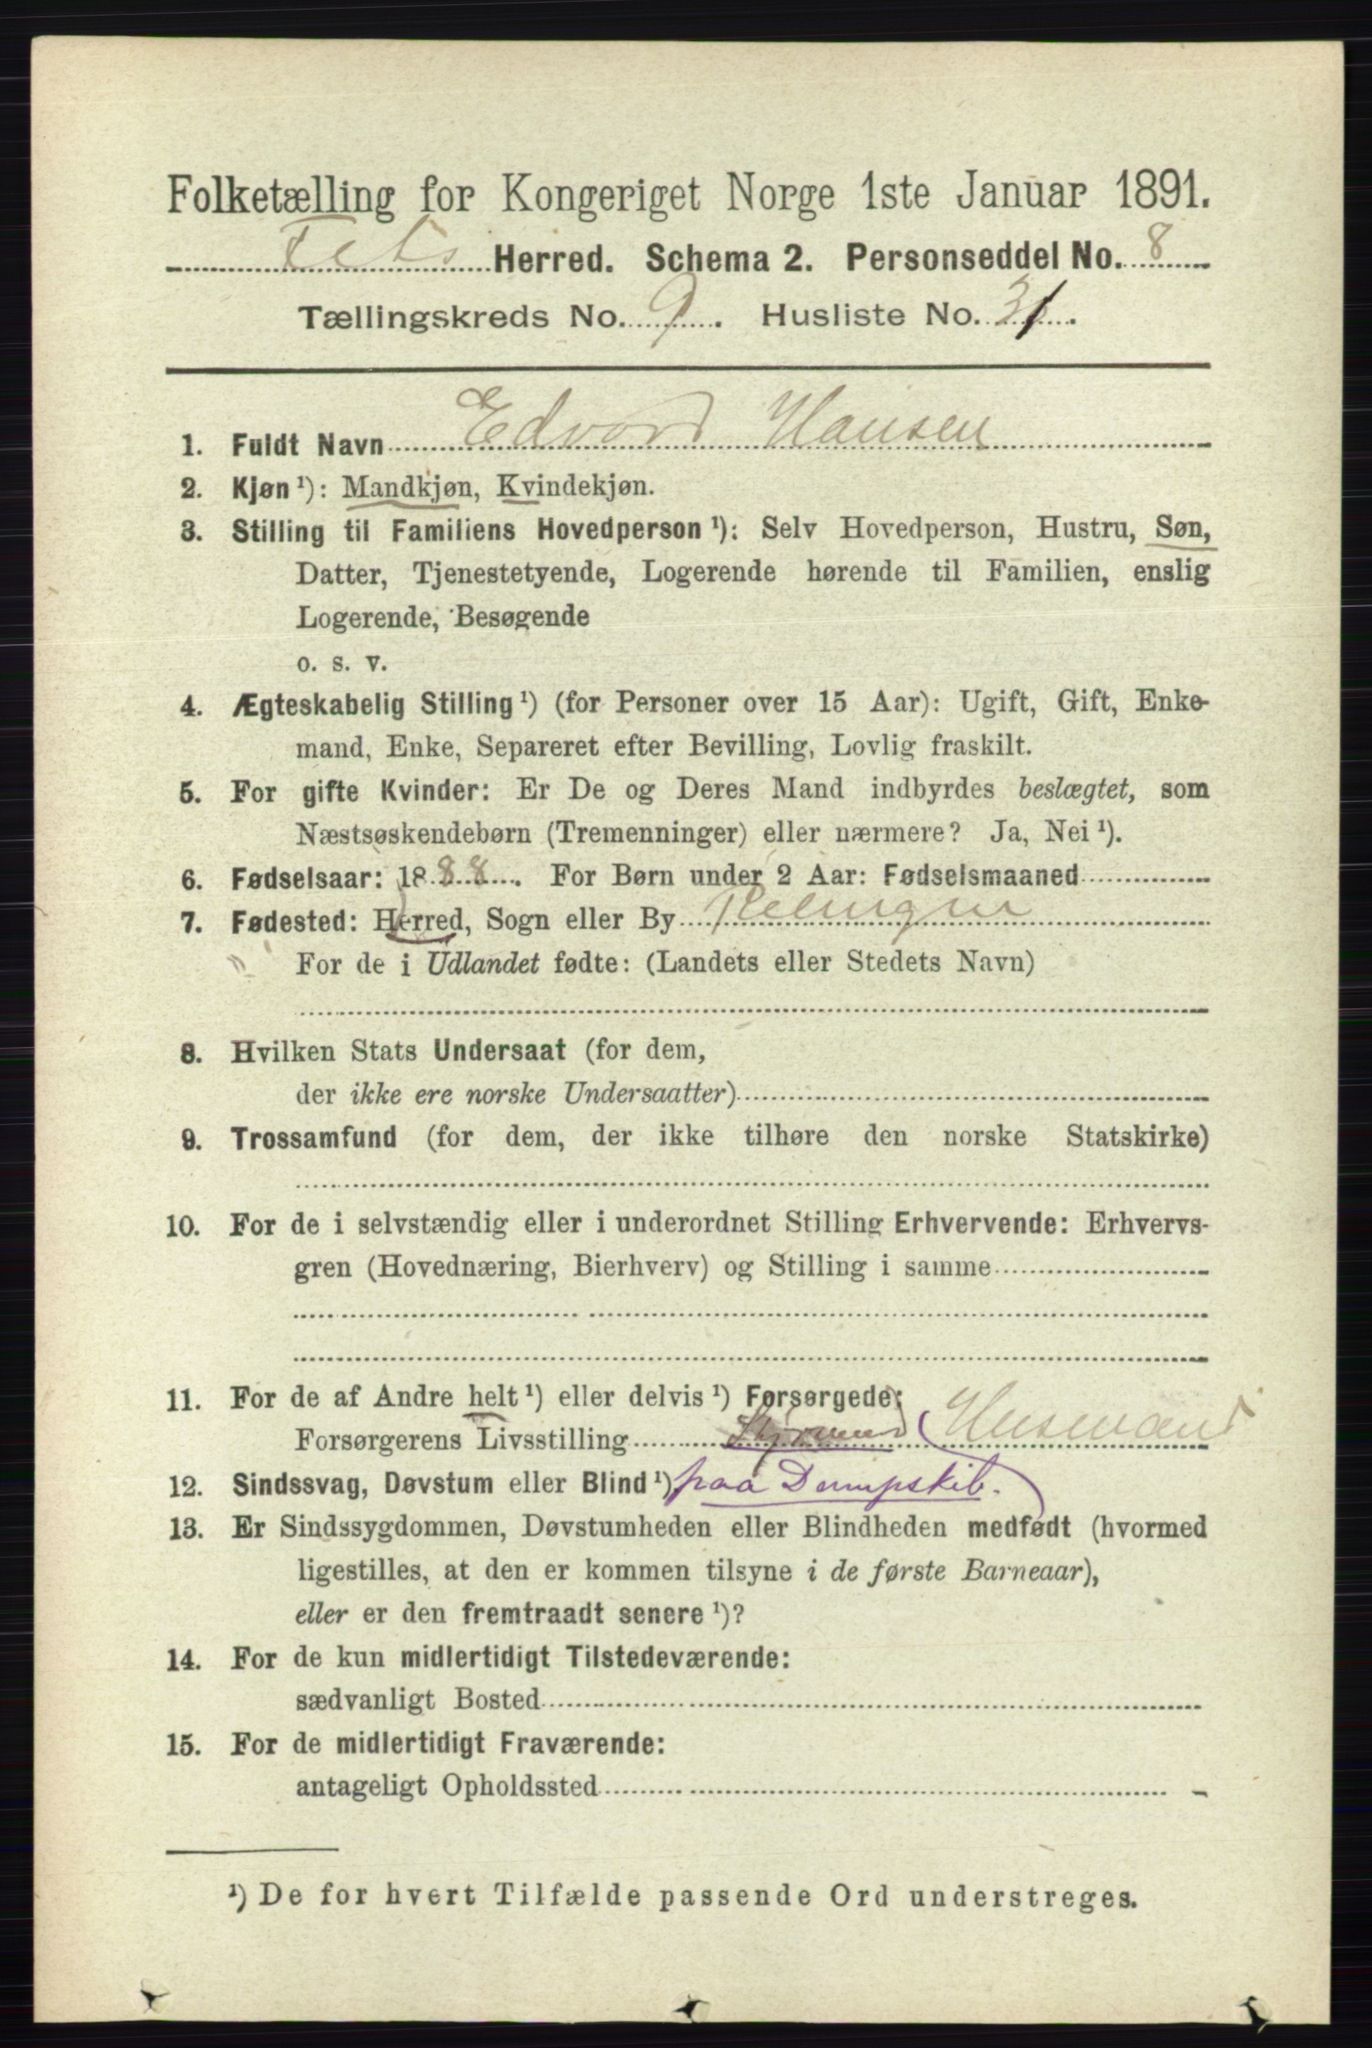 Folketælling for Kongeriget Norge 1ste Januar 1891.
Fets Herred. Schema 2. Personseddel No. 8
Tællingskreds No. 9. Husliste No. 31.
1. Fuldt Navn Edvard Hansen
2. Kjøn ¹): Mandkjøn, Kvindekjøn.
3. Stilling til Familiens Hovedperson ¹): Selv Hovedperson, Hustru, Søn,
Datter, Tjenestetyende, Logerende hørende til Familien, enslig
Logerende, Besøgende
o. s. v.
4. Ægteskabelig Stilling ¹) (for Personer over 15 Aar): Ugift, Gift, Enke-
mand, Enke, Separeret efter Bevilling, Lovlig fraskilt.
5. For gifte Kvinder: Er De og Deres Mand indbyrdes beslægtet, som
Næstsøskendebørn (Tremenninger) eller nærmere? Ja, Nei ¹).
6. Fødselsaar: 1888. For Børn under 2 Aar: Fødselsmaaned
7. Fødested: Herred, Sogn eller By Relingen
For de i Udlandet fødte: (Landets eller Stedets Navn)
8. Hvilken Stats Undersaat (for dem,
der ikke ere norske Undersaatter)
9. Trossamfund (for dem, der ikke tilhøre den norske Statskirke)
10. For de i selvstændig eller i underordnet Stilling Erhvervende: Erhvervs-
gren (Hovednæring, Bierhverv) og Stilling i samme
11. For de af Andre helt ¹) eller delvis ¹) Forsørgede:
Forsørgerens Livsstilling Styrmand (Husmand)
12. Sindssvag, Døvstum eller Blind ¹). paa Dampskib.
13. Er Sindssygdommen, Døvstumheden eller Blindheden medfødt (hvormed
ligestilles, at den er kommen tilsyne i de første Barneaar),
eller er den fremtraadt senere ¹)?
14. For de kun midlertidigt Tilstedeværende:
sædvanligt Bosted
15. For de midlertidigt Fraværende:
antageligt Opholdssted
¹) De for hvert Tilfælde passende Ord understreges.